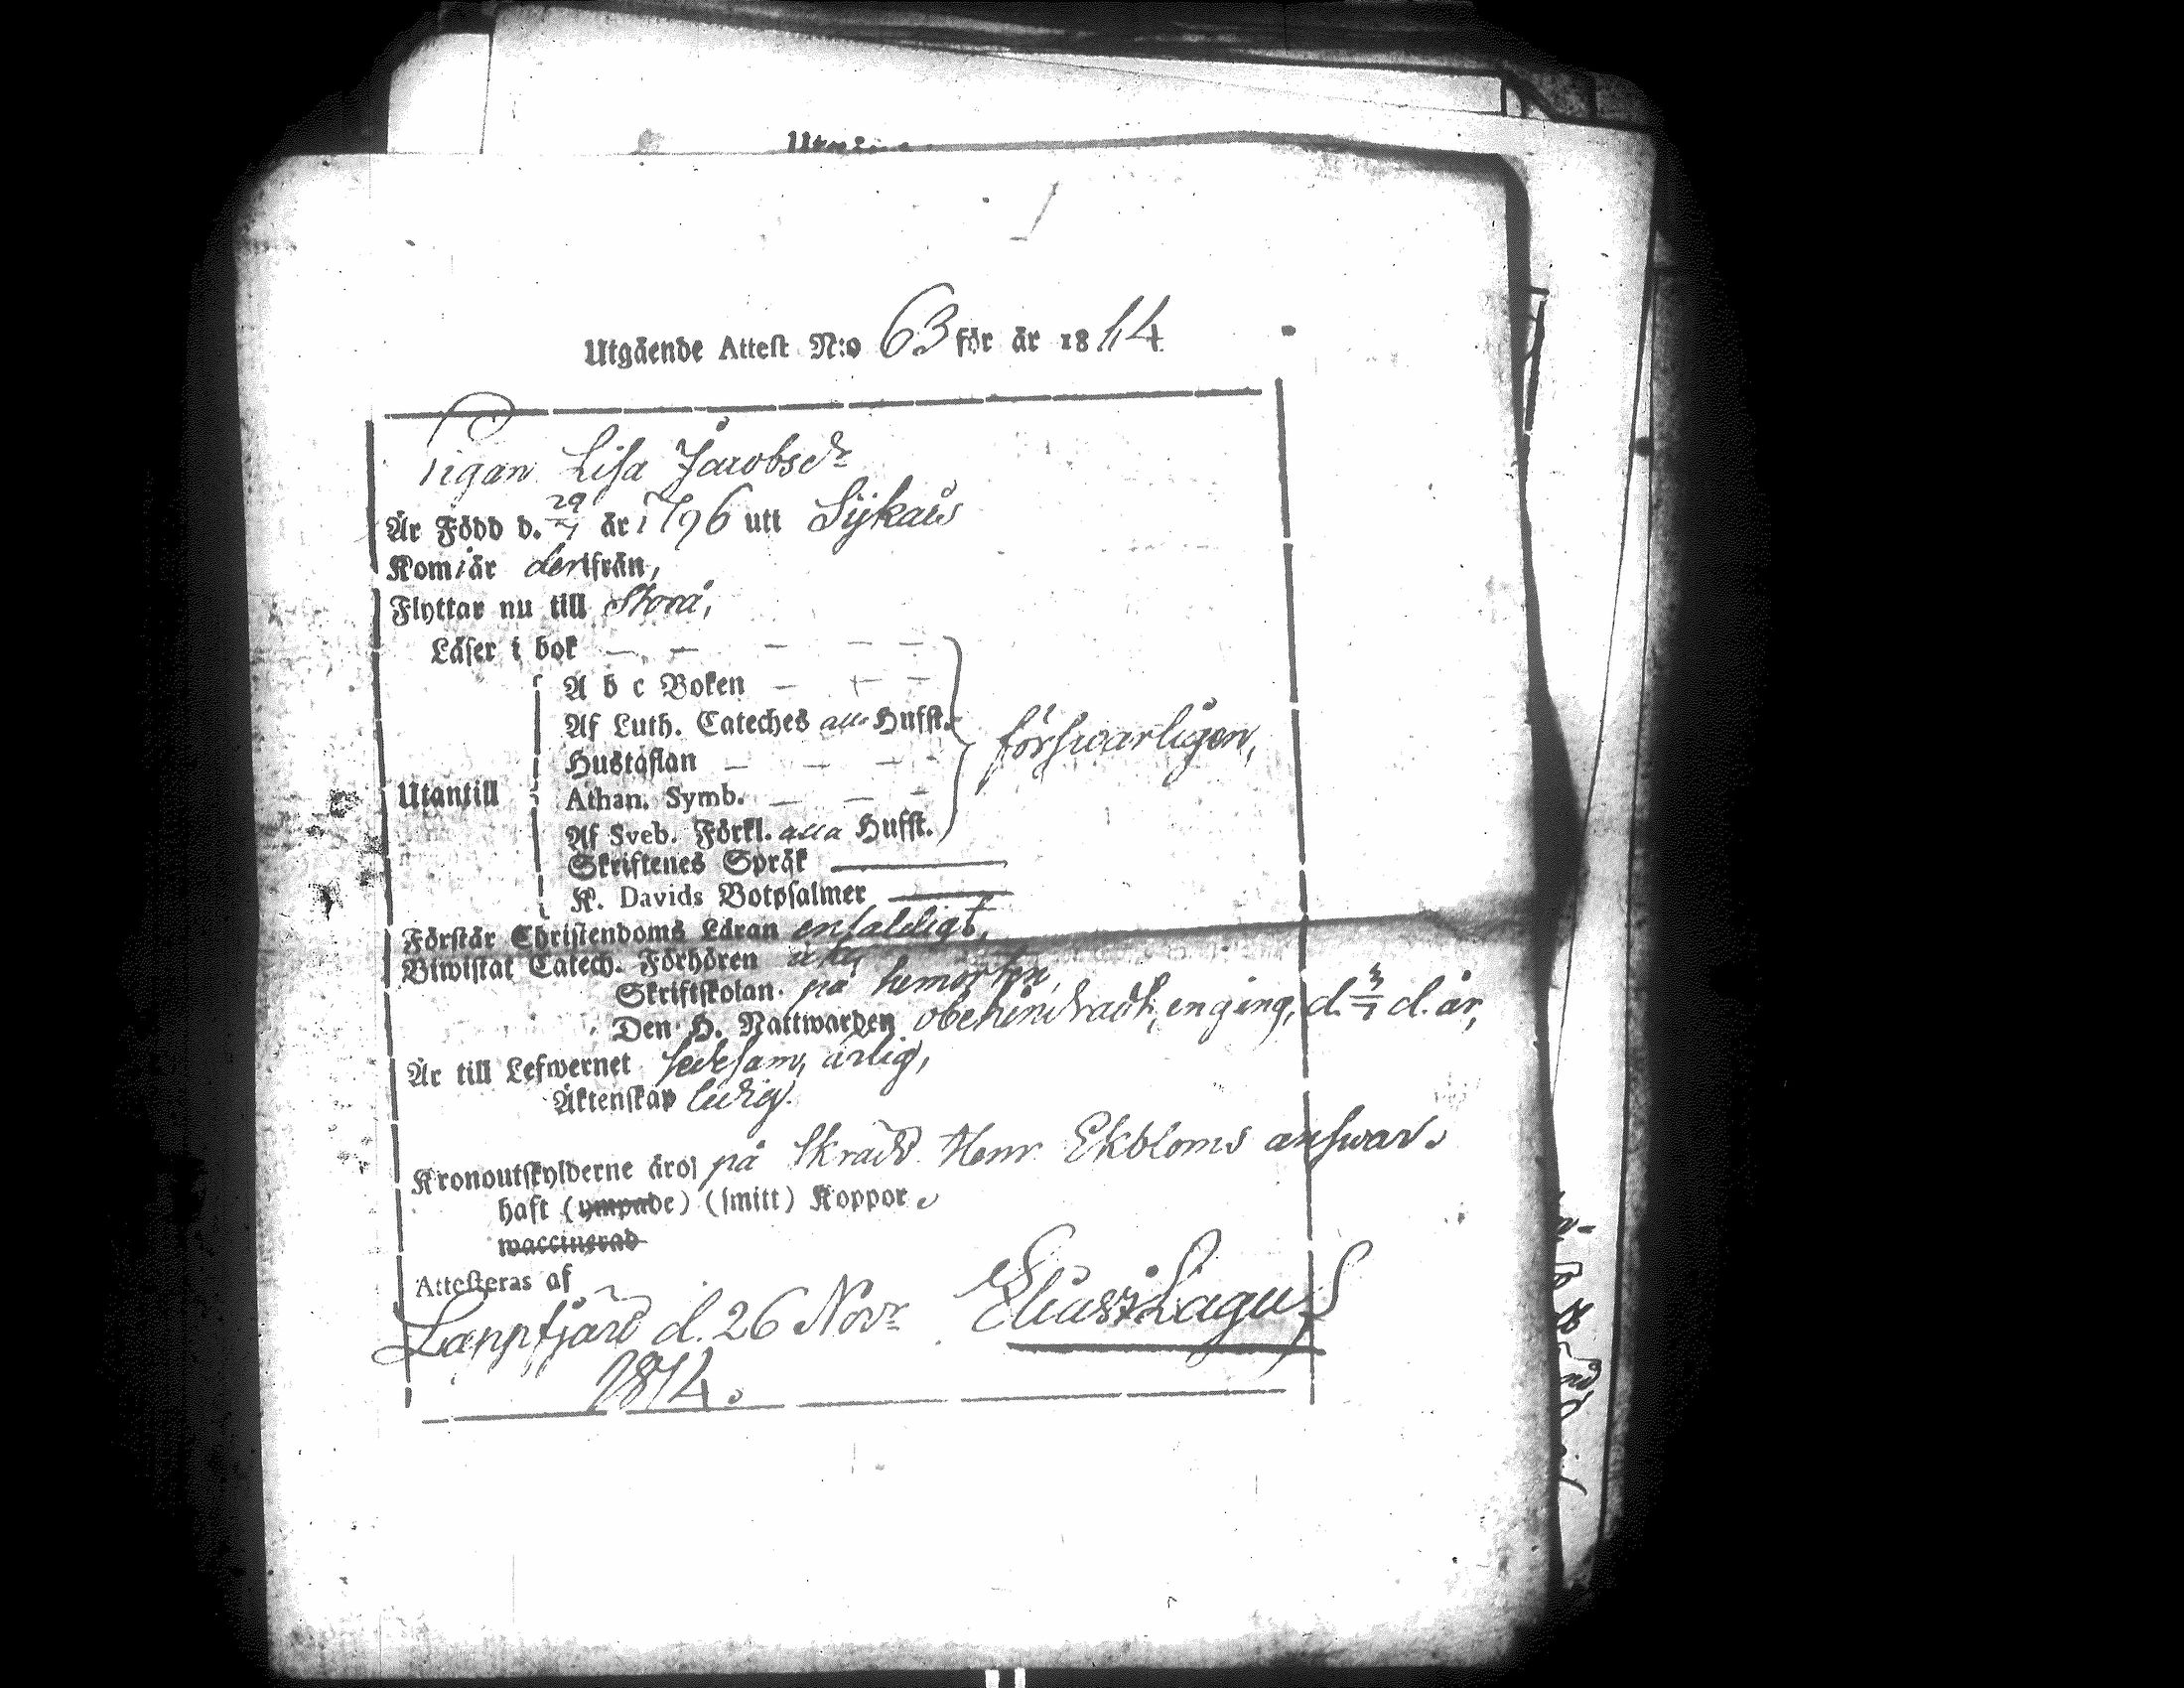 Utgående Attest N:o 63 för år 1814
Pigan Lisa Jacobsdr
Är Född d. 29/7 år 1796 utt Sijkais
Kom är derifrån,
Flyttar nu till Storå,
Läser i bok — — — — —
A b c Boken — — —
Af Luth. Cateches alla Hufst.
Hustaflan — — — —
försvarligen,
Utantill
Athan. Symb. — — —
Af Sveb. Förkl. alla Hufst.
Skriftenes Språk
K. Davids Botpsalmer
Förstår Christendoms Läran enfaldigt,
Biwistat Catech. Förhören
Skriftskolan på hemorten
Den H. Nattwarden obehindradt, en gång, d. 3/7 d. år,
Är till Lefwernet sedesam, ärlig,
Äktenskap ledig.
Kronoutskylderne äro på Skrädd. Henr Ekbloms answar.
haft (ympade) (smitt) Koppor
waccinerad
Attesteras af
Lappfjärd d. 26 Novr Elias Lagus
1814.